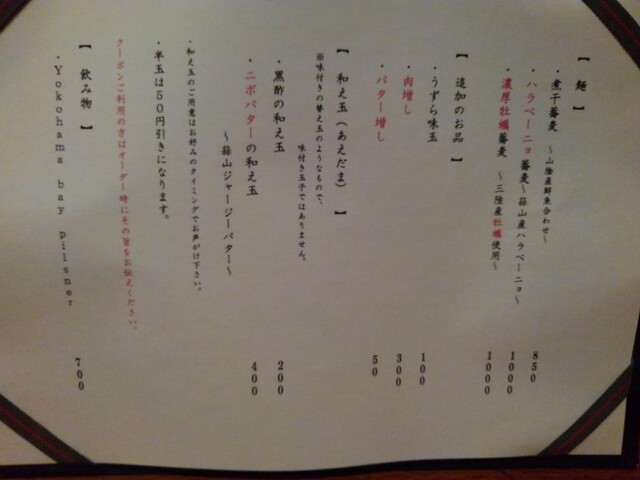 【 麺 】
・煮干蕎麦 ～山陰産鮮魚合わせ～ 850
・ハラペーニョ蕎麦～蒜山産ハラペーニョ～ 1000
・濃厚牡蠣蕎麦 ～三陸産牡蠣使用～ 1000
【 追加のお品 】
・うずら味玉 100
・肉増し 300
・バター増し 50
【 和え玉（あえだま） 】
※味付きの替え玉のようなもので、
味付き玉子ではありません。
・黒酢の和え玉 200
・ニボバターの和え玉 400
～蒜山ジャージーバター～
・和え玉のご用意はお好みのタイミングでお声がけ下さい。
・半玉は50円引きになります。
クーポンご利用の方はオーダー時にその旨をお伝えください。
【 飲み物 】
・Yokohama bay Pilsner 700